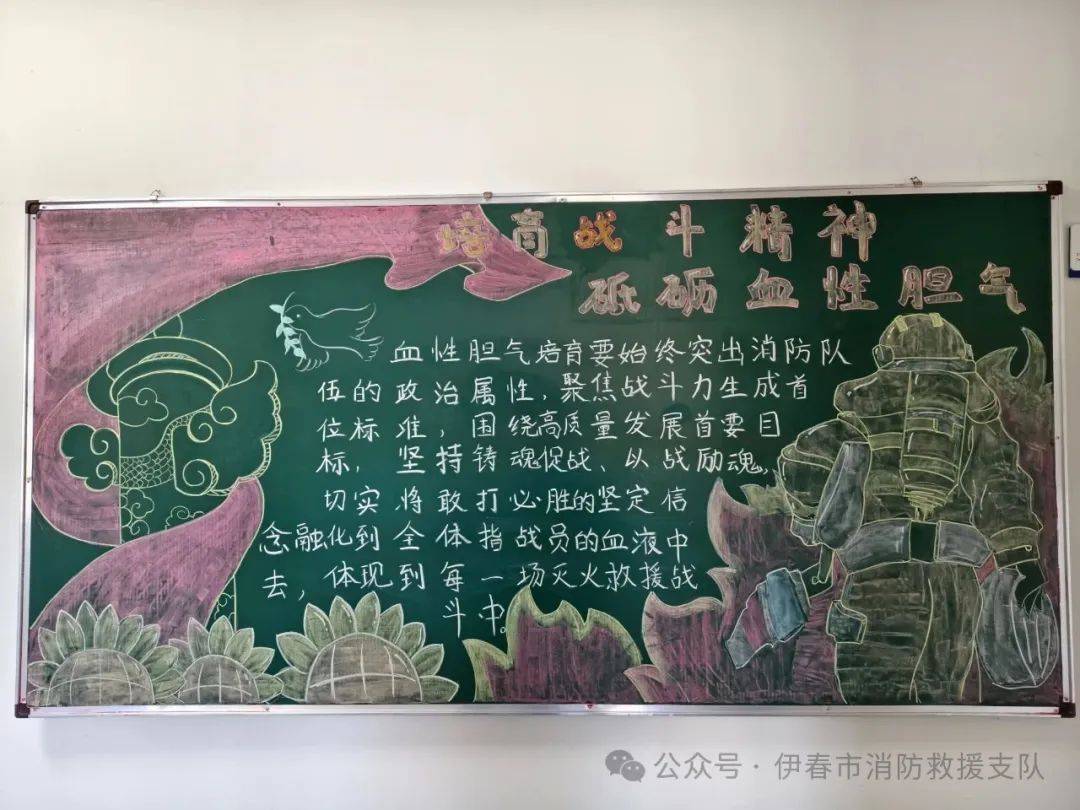 培育战斗精神
砥砺血性胆气
血性胆气培育要始终突出消防队
伍的政治属性,聚焦战斗力生成首
位标准,围绕高质量发展首要目
标,坚持铸魂促战、以战励魂,
切实将敢打必胜的坚定信
念融化到全体指战员的血液中
去,体现到每一场灭火救援战
斗中。
公众号·伊春市消防救援支队